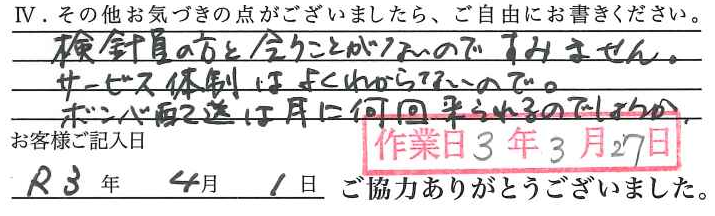 Ⅳ．その他お気づきの点がございましたら、ご自由にお書きください。
検針員の方と会うことがないのですみません。
サービス体制はよくわからないので。
ボンベ配送は月に何回来られるのでしょうか。
お客様ご記入日
作業日3年3月27日
R3年 4月 1日 ご協力ありがとうございました。